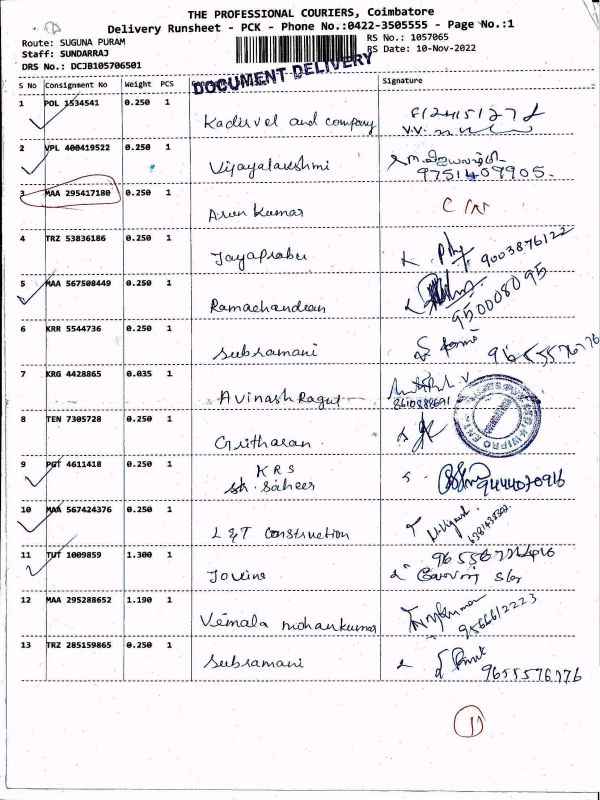 THE PROFESSIONAL COURIERS, Coimbatore
Delivery Runsheet - PCK - Phone No.:0422-3505555 - Page No.:1
Route: SUGUNA PURAM
RS No.: 1057065
Staff: SUNDARRAJ
RS Date: 10-Nov-2022
DRS No.: DCJB105706501
DOCUMENT DELIVERY
S No Consignment No Weight PCS Signature
1 POL 1534541 0.250 1 Kadirvel and company
2 VPL 400419522 0.250 1 Vijayalakshmi
9751409905.
3 MAA 295417180 0.250 1 Arun Kumar
4 TRZ 53836186 0.250 1 Jayaprabu 9003876122
5 MAA 567508449 0.250 1 Ramachandran 950008095
6 KRR 5544736 0.250 1 Subramani 9655576776
7 KRG 4428865 0.035 1 Avinash Ragul
8610888691
8 TEN 7305728 0.250 1 Gritharan
9 PGT 4611418 0.250 1 KRS
sk. Saheer 9444070916
10 MAA 567424376 0.250 1 L & T Construction
11 TUT 1009859 1.300 1 Jovine
12 MAA 295288652 1.190 1 Vemala mohankumar 9566612223
13 TRZ 285159865 0.250 1 Subramani 9655576776
11